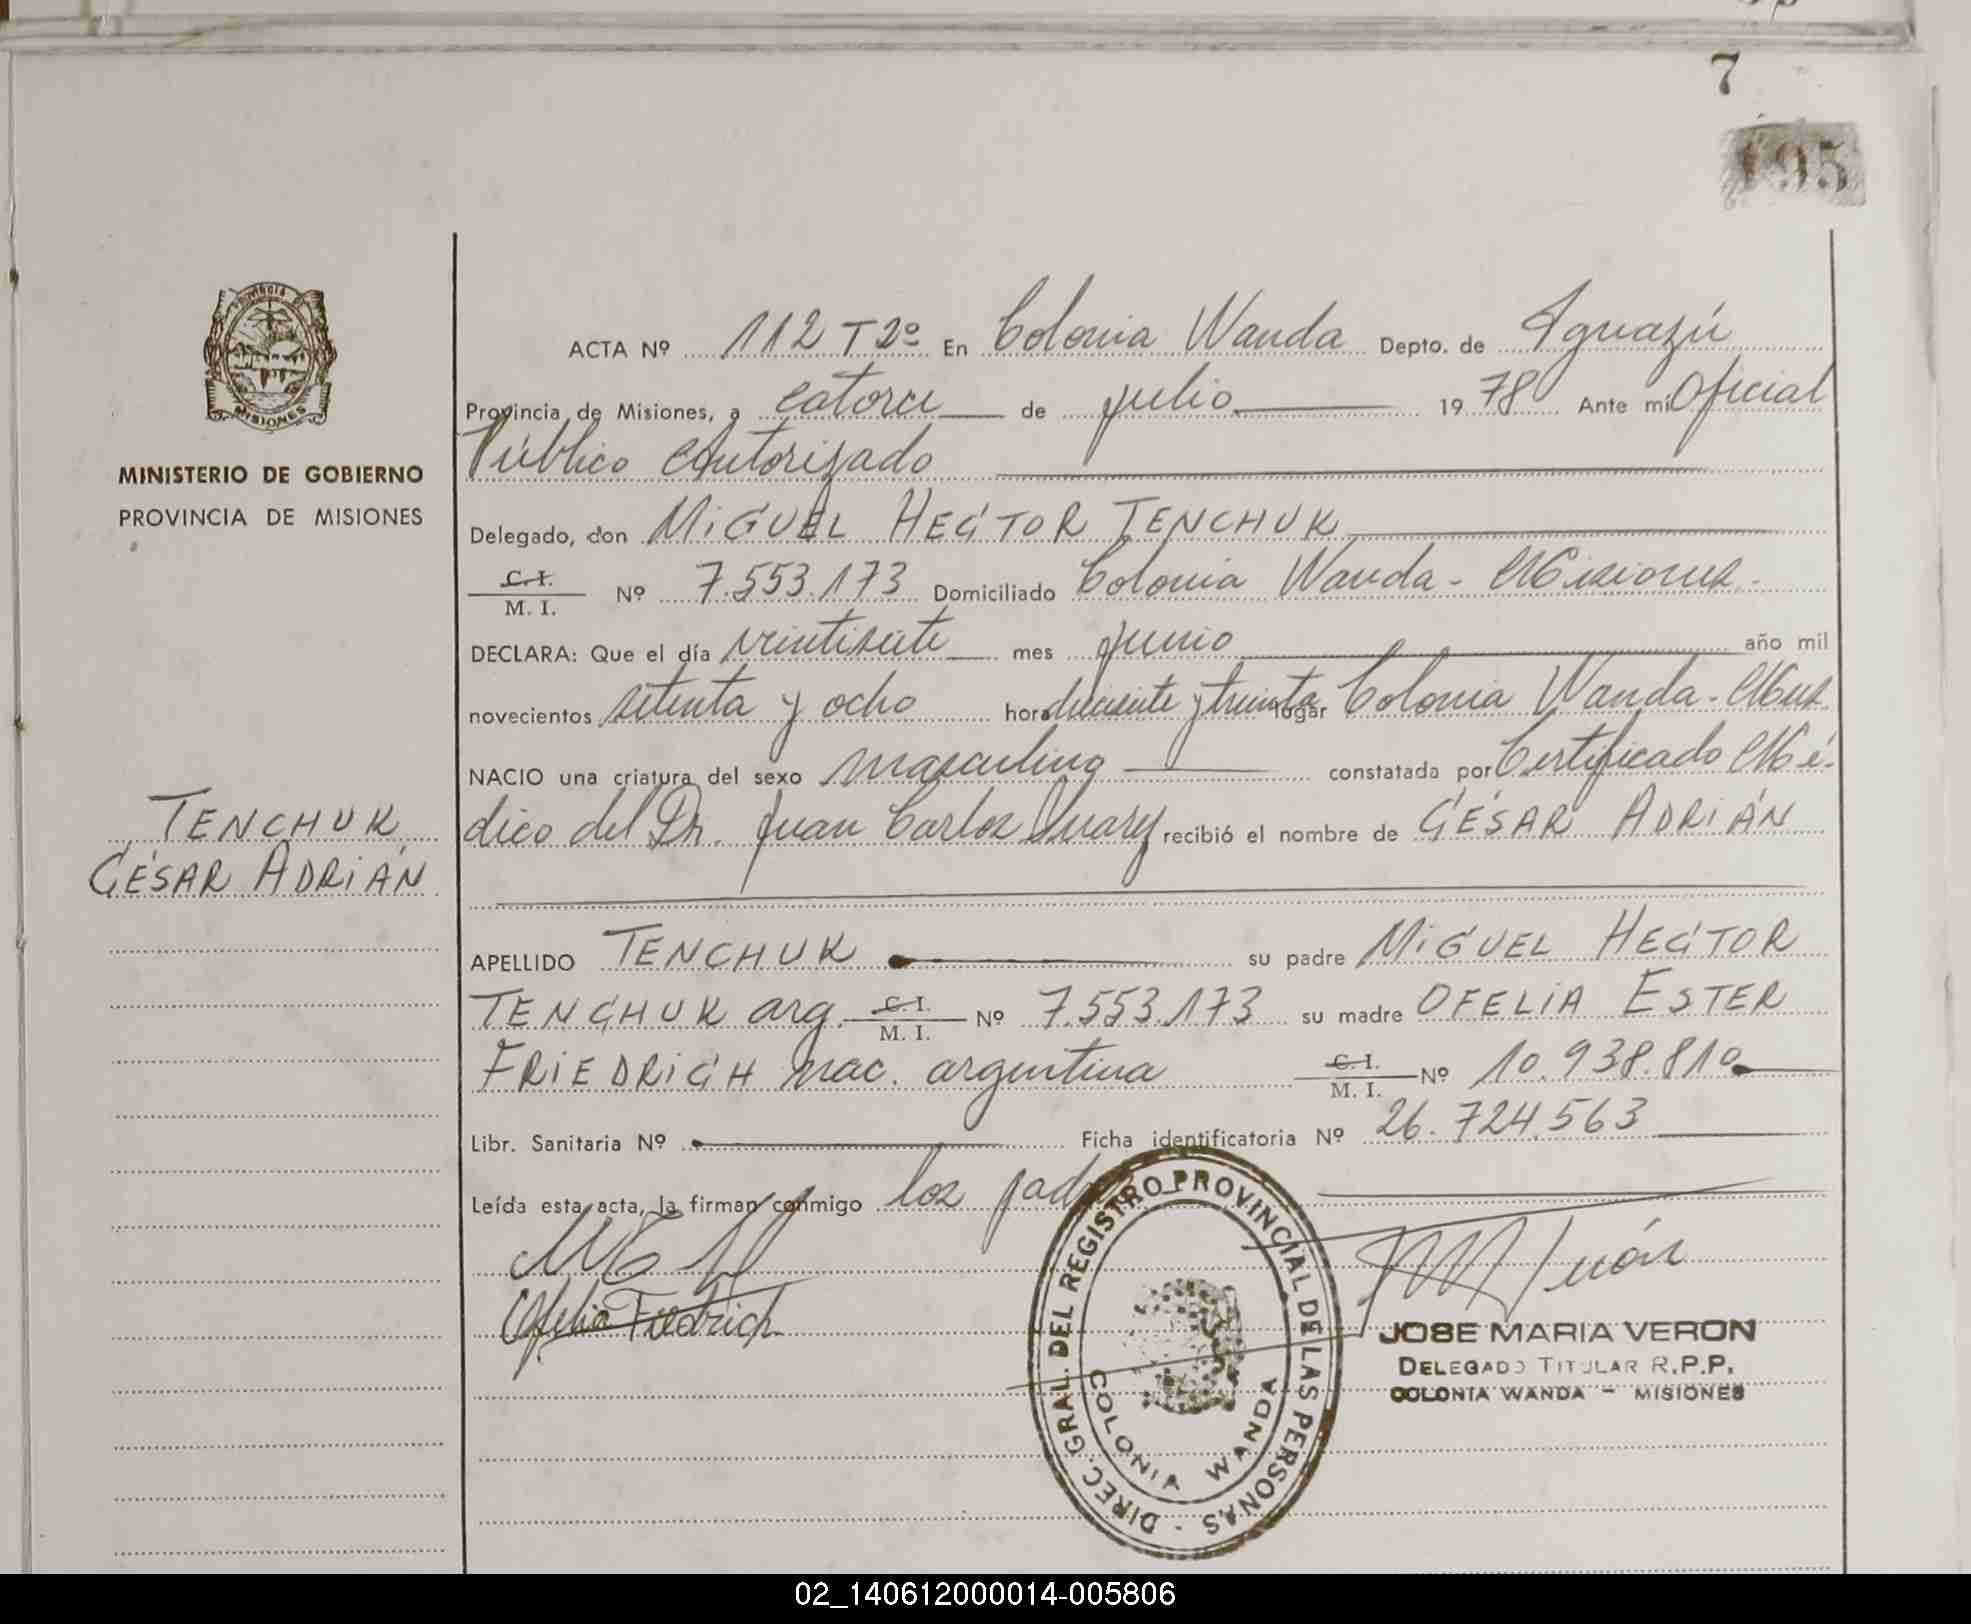 7
195
Provincia de
MISIONES
MINISTERIO DE GOBIERNO
PROVINCIA DE MISIONES
TENCHUK
CÉSAR ADRIÁN
ACTA Nº 112 T 2º En Colonia Wanda Depto. de Iguazú
Provincia de Misiones, a catorce de julio 1978 Ante mi Oficial
Público Autorizado
Delegado, don MIGUEL HECTOR TENCHUK
C. I. / M. I. Nº 7.553.173 Domiciliado Colonia Wanda - Misiones.
DECLARA: Que el día veintisiete mes junio año mil
novecientos setenta y ocho hora diecisiete y treinta lugar Colonia Wanda - Mnes.
NACIO una criatura del sexo masculino constatada por Certificado Mé-
dico del Dr. Juan Carlos Suarez recibió el nombre de CÉSAR ADRIÁN
APELLIDO TENCHUK su padre MIGUEL HECTOR
TENCHUK arg. C. I. / M. I. Nº 7.553.173 su madre OFELIA ESTER
FRIEDRICH nac. argentina C. I. / M. I. Nº 10.938.810
Libr. Sanitaria Nº Ficha identificatoria Nº 26.724.563
Leída esta acta, la firman conmigo los padres
Ofelia Friedrich
DIREC. GRAL. DEL REGISTRO PROVINCIAL DE LAS PERSONAS -
COLONIA WANDA
JOSE MARIA VERON
DELEGADO TITULAR R.P.P.
COLONIA WANDA - MISIONES
02_140612000014-005806